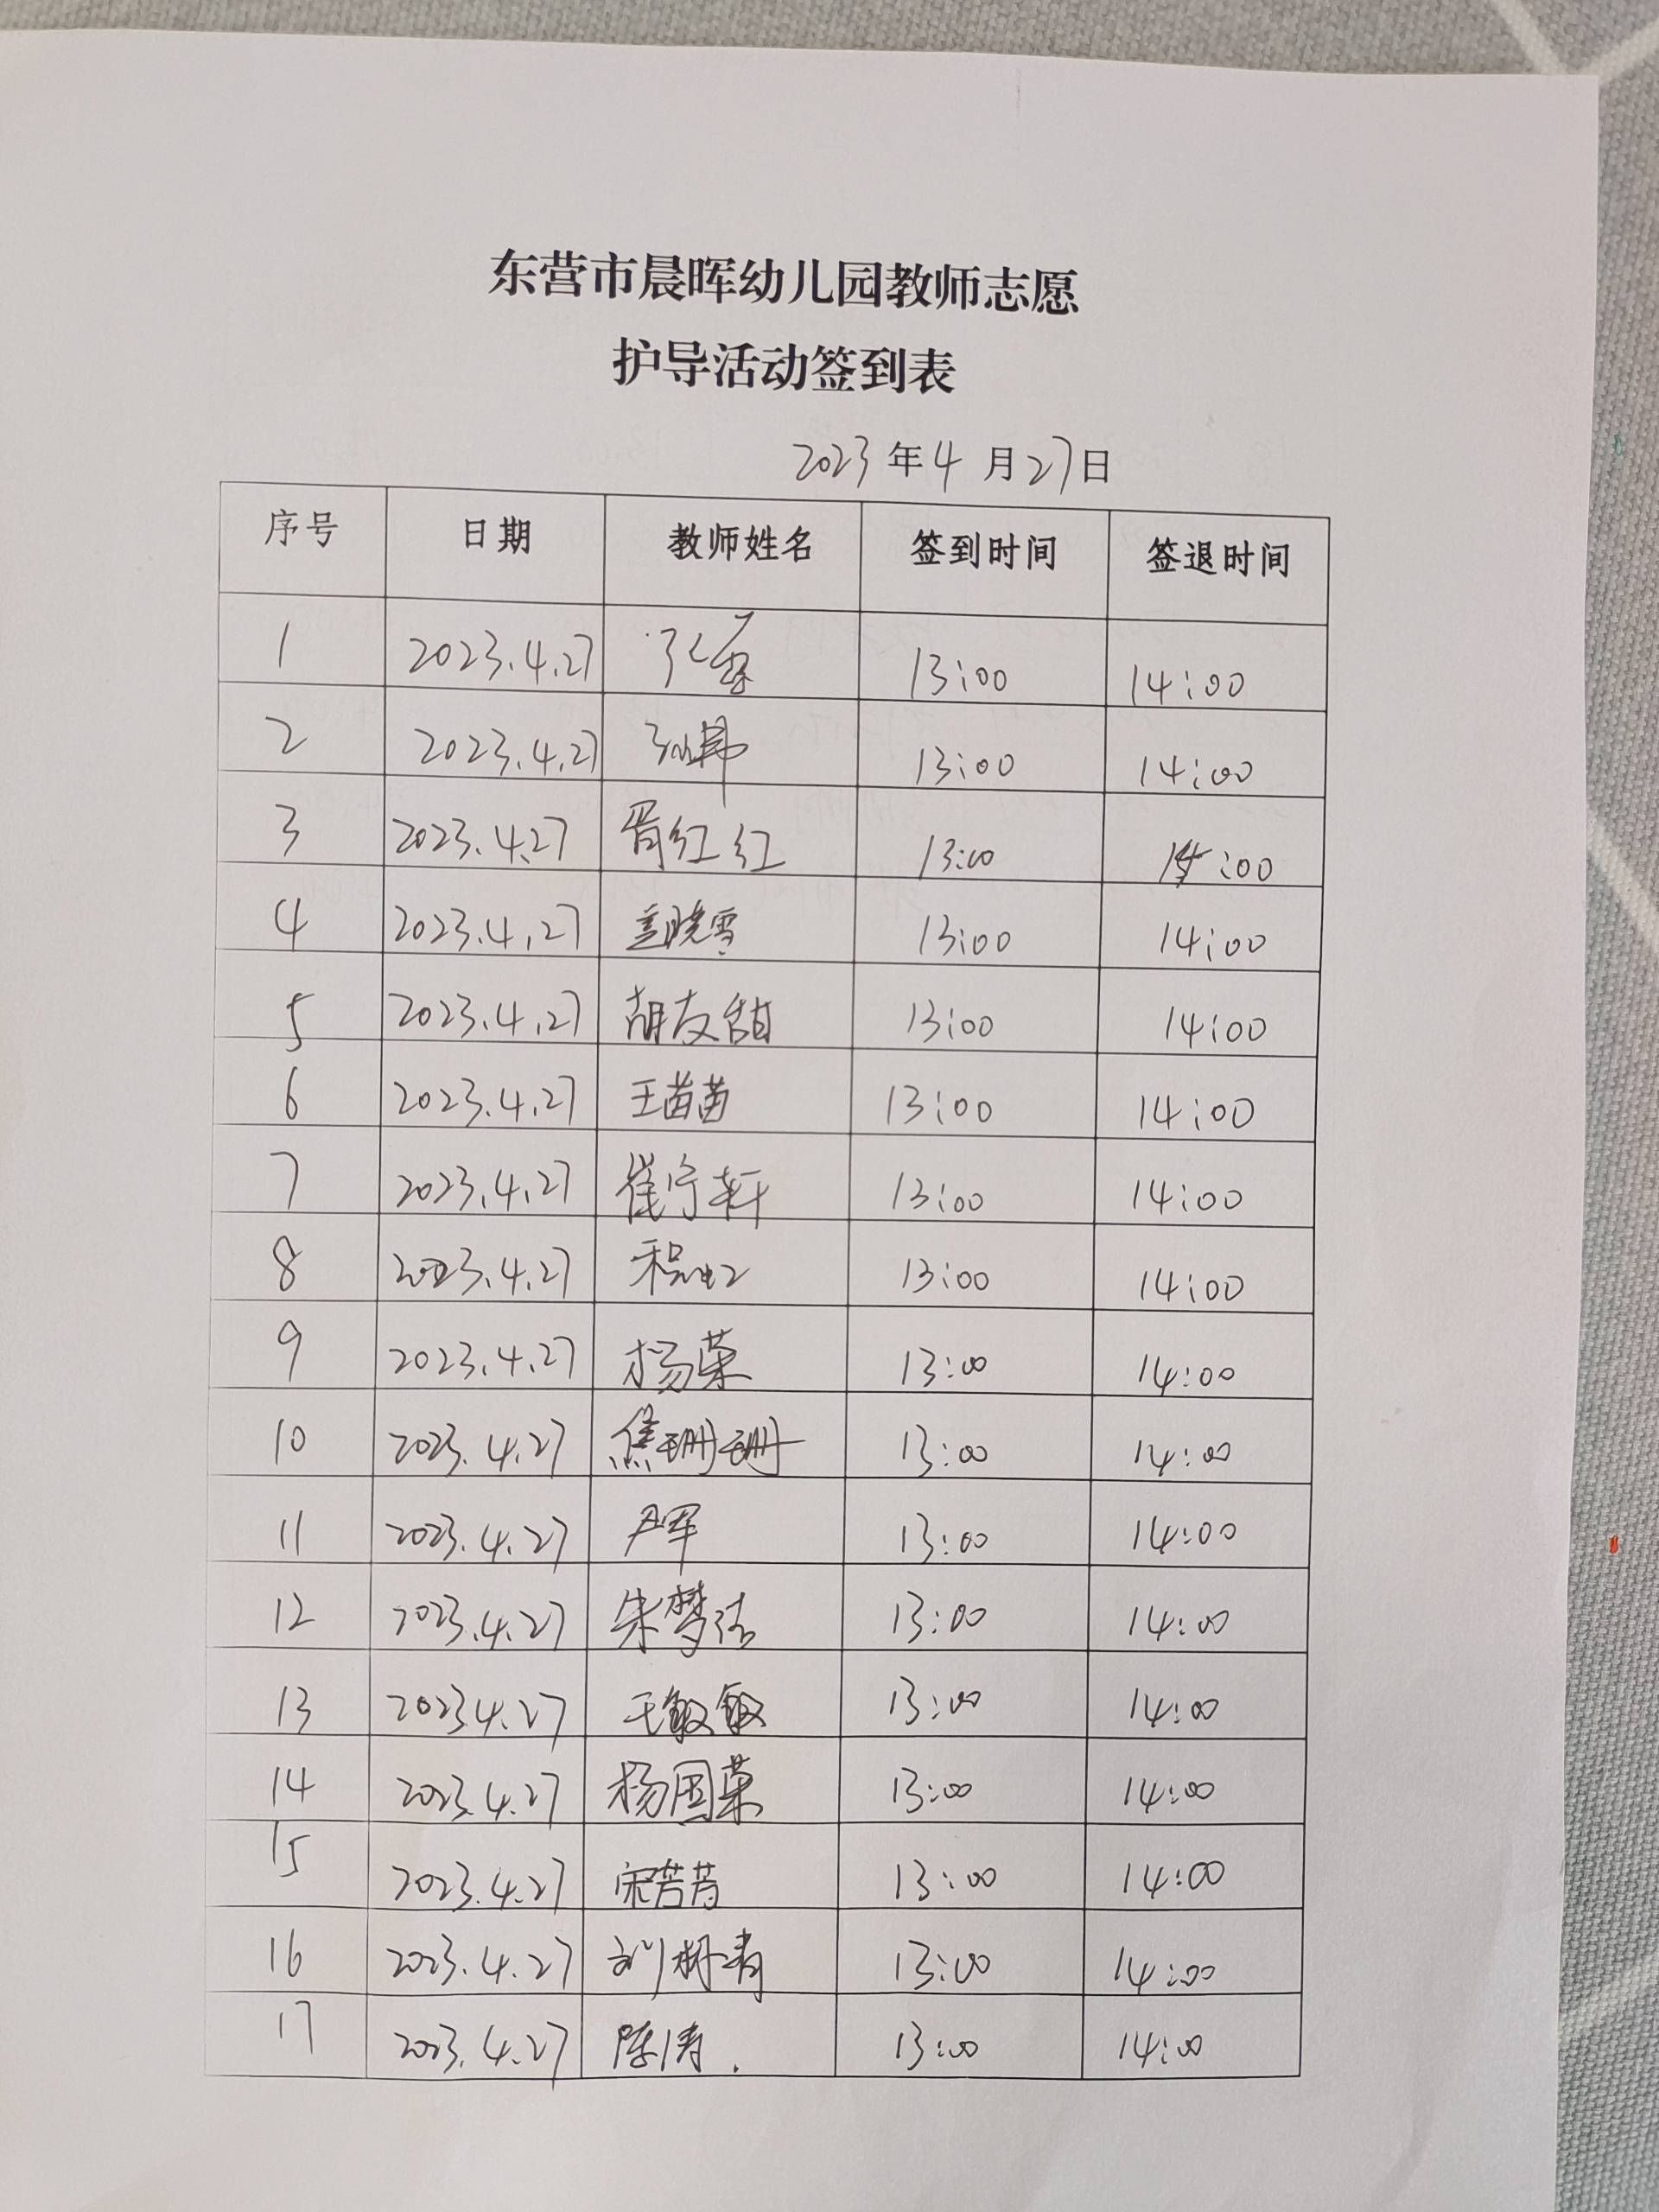 东营市晨晖幼儿园教师志愿
护导活动签到表
2023年4月27日
序号 日期 教师姓名 签到时间 签退时间
1 2023.4.27 13:00 14:00
2 2023.4.27 13:00 14:00
3 2023.4.27 胥红红 13:00 14:00
4 2023.4.27 盖晓雪 13:00 14:00
5 2023.4.27 胡友 13:00 14:00
6 2023.4.27 王苗苗 13:00 14:00
7 2023.4.27 崔宁轩 13:00 14:00
8 2023.4.27 程 13:00 14:00
9 2023.4.27 杨荣 13:00 14:00
10 2023.4.27 焦珊珊 13:00 14:00
11 2023.4.27 尹军 13:00 14:00
12 2023.4.27 朱梦洁 13:00 14:00
13 2023 4.27 王敏敏 13:00 14:00
14 2023.4.27 杨国荣 13:00 14:00
15 2023.4.27 宋芳芳 13:00 14:00
16 2023.4.27 刘 13:00 14:00
17 2023.4.27 陈涛. 13:00 14:00